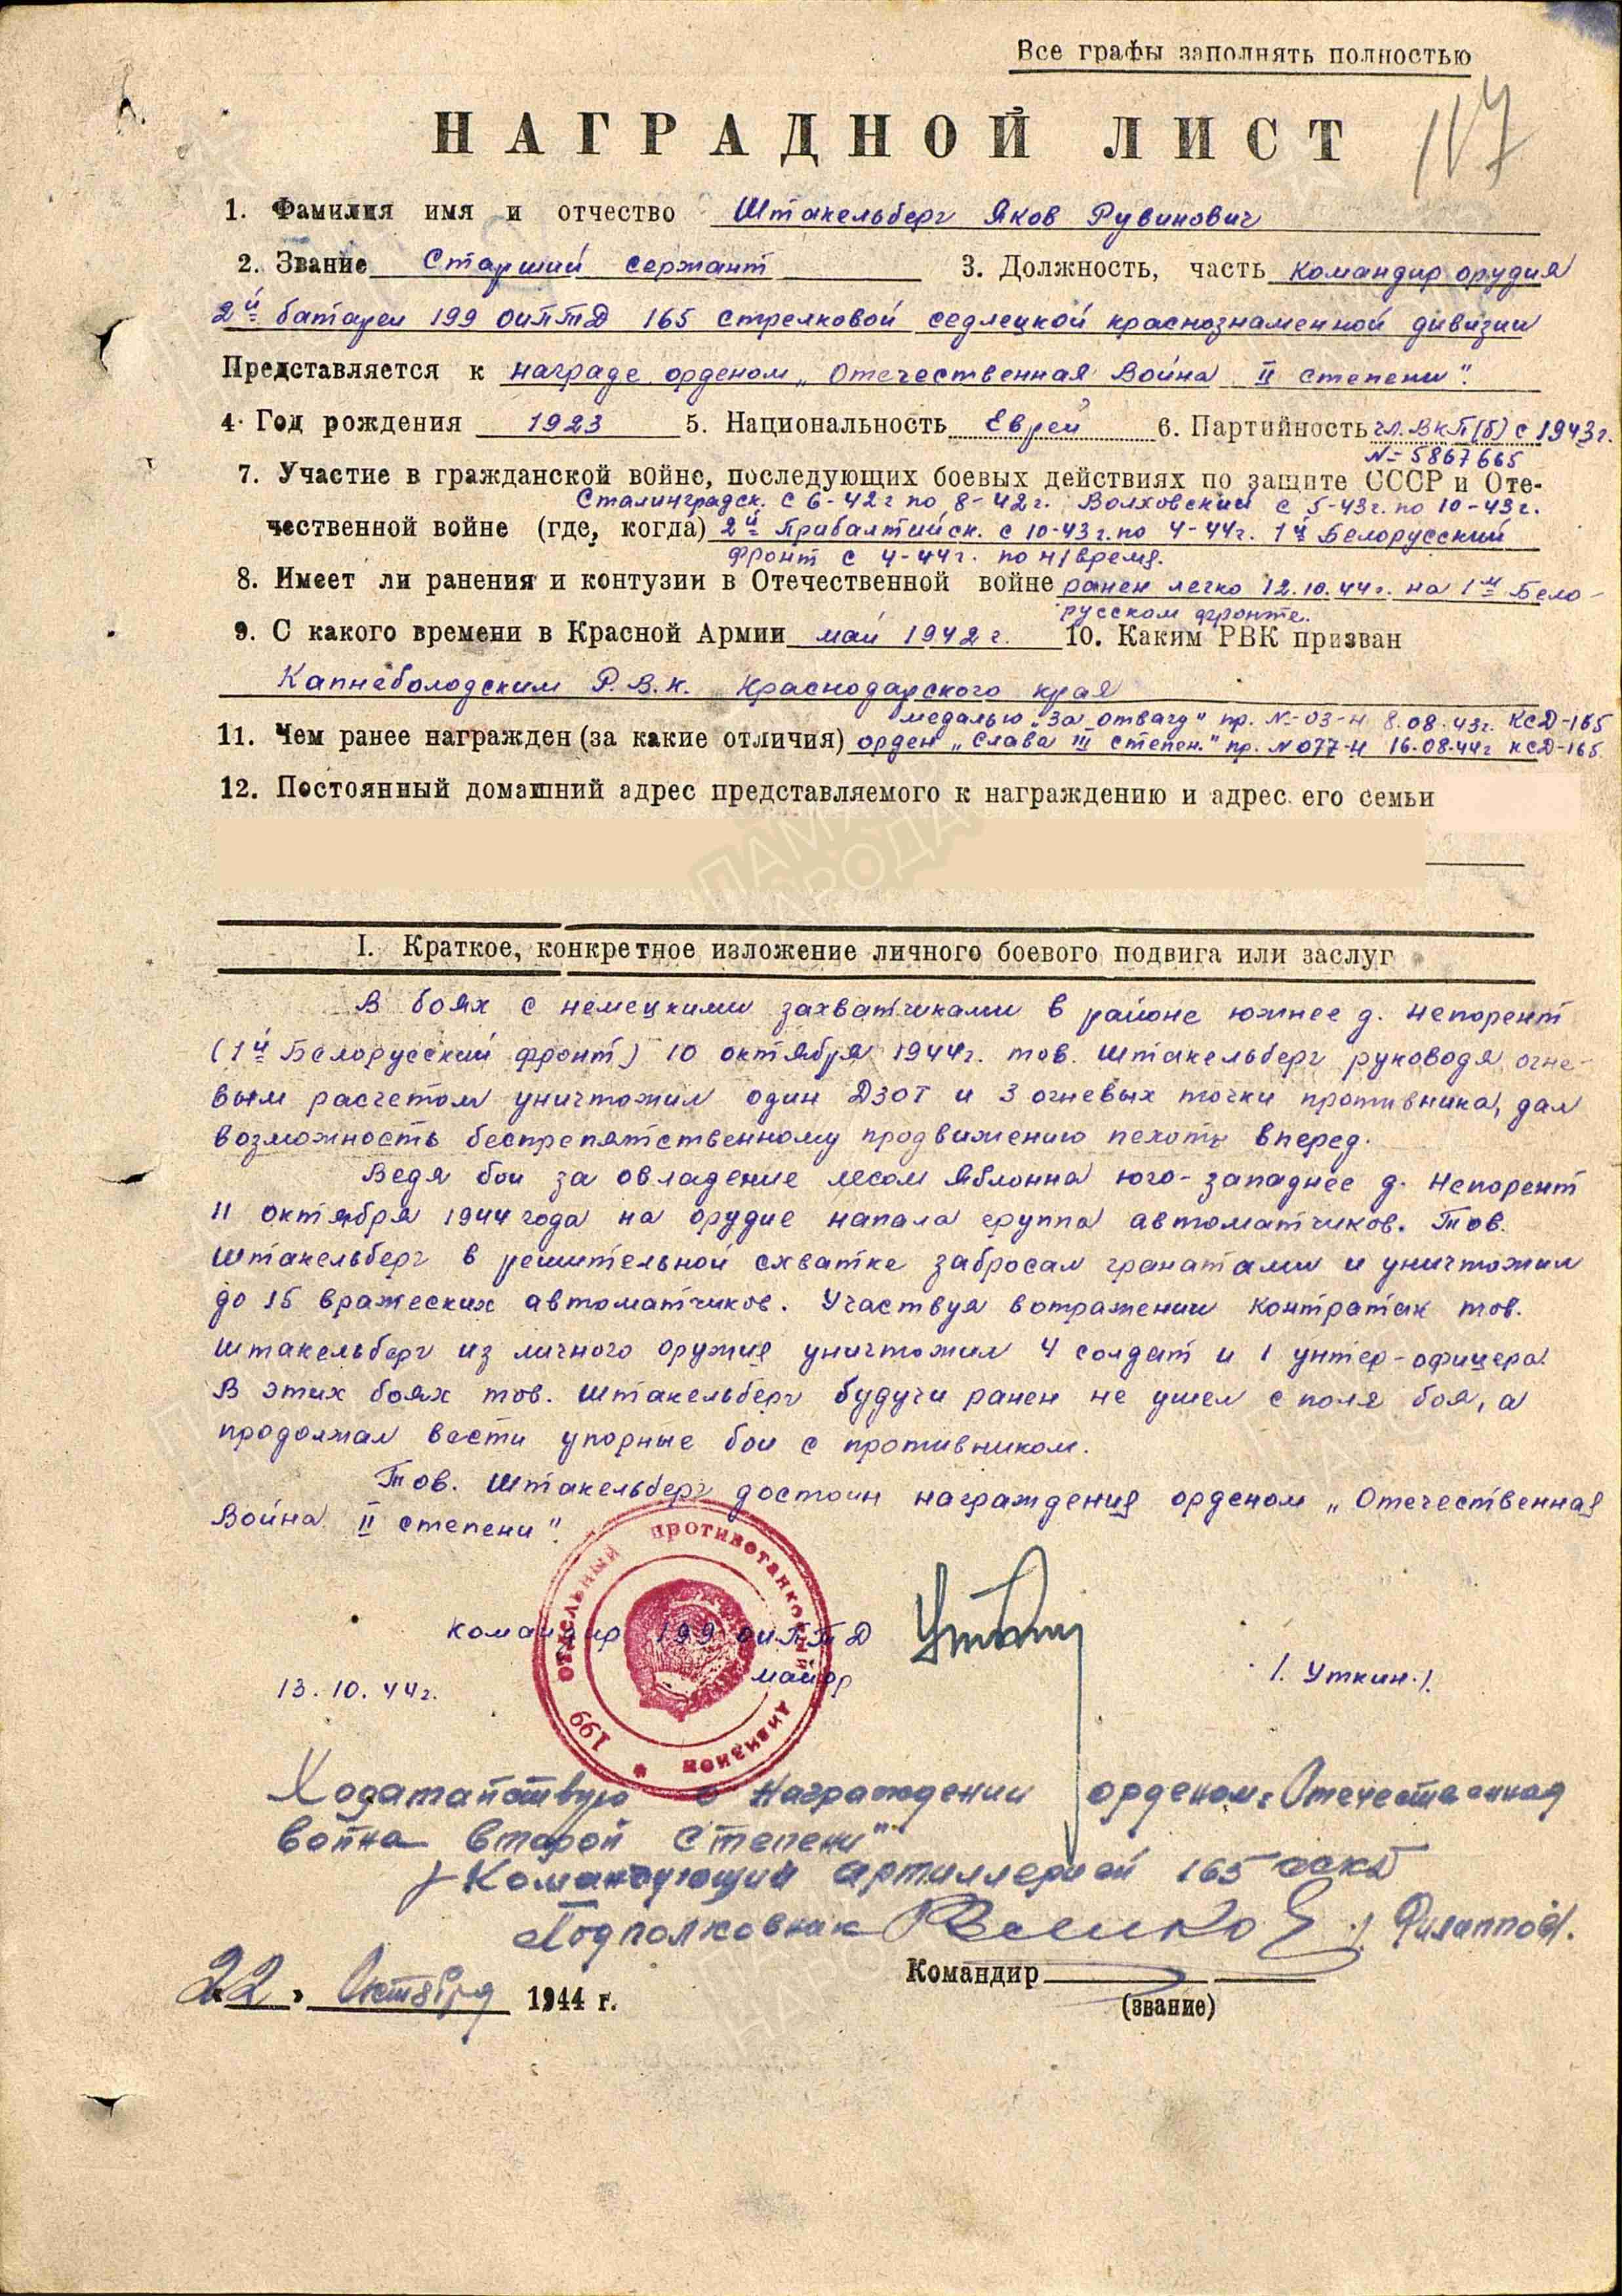 Все графы заполнять полностью
НАГРАДНОЙ ЛИСТ
117
1. Фамилия имя и отчество Штакельберг Яков Рувинович
2. Звание Старший сержант 3. Должность, часть командир орудия
2й батареи 199 ОИПТД 165 стрелковой седлецкой краснознаменной дивизии
Представляется к награде орденом „Отечественная Война II степени".
4. Год рождения 1923 5. Национальность Еврей 6. Партийность чл. ВКП(б) с 1943г.
№ 5867665
7. Участие в гражданской войне, последующих боевых действиях по защите СССР и Оте-
Сталинградск. с 6-42г по 8-42г. Волховский с 5-43г. по 10-43г.
чественной войне (где, когда) 2й Прибалтийск. с 10-43г. по 4-44г. 1й Белорусский
фронт с 4-44г. по н/время.
8. Имеет ли ранения и контузии в Отечественной войне ранен легко 12.10.44г. на 1м Бело-
русском фронте.
9. С какого времени в Красной Армии май 1942г. 10. Каким РВК призван
Капнеболодским Р.В.К. Краснодарского края
медалью „За отвагу" пр. №-03-н 8.08.43г. КСД-165
11. Чем ранее награжден (за какие отличия) орден „Слава III степен." пр. №077-н 16.08.44г КСД-165
12. Постоянный домашний адрес представляемого к награждению и адрес его семьи
ПАМЯТЬ НАРОДА
I. Краткое, конкретное изложение личного боевого подвига или заслуг
В боях с немецкими захватчиками в районе южнее д. Непорент
(1й Белорусский фронт) 10 октября 1944г. тов. Штакельберг руководя огне-
вым расчетом уничтожил один ДЗОТ и 3 огневых точки противника, дал
возможность беспрепятственному продвижению пехоты вперед.
Ведя бои за овладение лесом Яблонна юго-западнее д. Непорент
11 октября 1944 года на орудие напала группа автоматчиков. Тов.
Штакельберг в решительной схватке забросал гранатами и уничтожил
до 15 вражеских автоматчиков. Участвуя в отражении контратак тов.
Штакельберг из личного оружия уничтожил 4 солдат и 1 унтер-офицера.
В этих боях тов. Штакельберг будучи ранен не ушел с поля боя, а
продолжал вести упорные бои с противником.
Тов. Штакельберг достоин награждения орденом „Отечественная
Война II степени".
199 отдельный противотанковый дивизион
Командир 199 ОИПТД
майор /. Уткин./.
13.10.44г.
Ходатайствую о награждении орденом „Отечественная
война второй степени"
Командующий артиллерией 165
Подполковник / Филиппов/.
Командир
(звание)
22 Октября 1944 г.